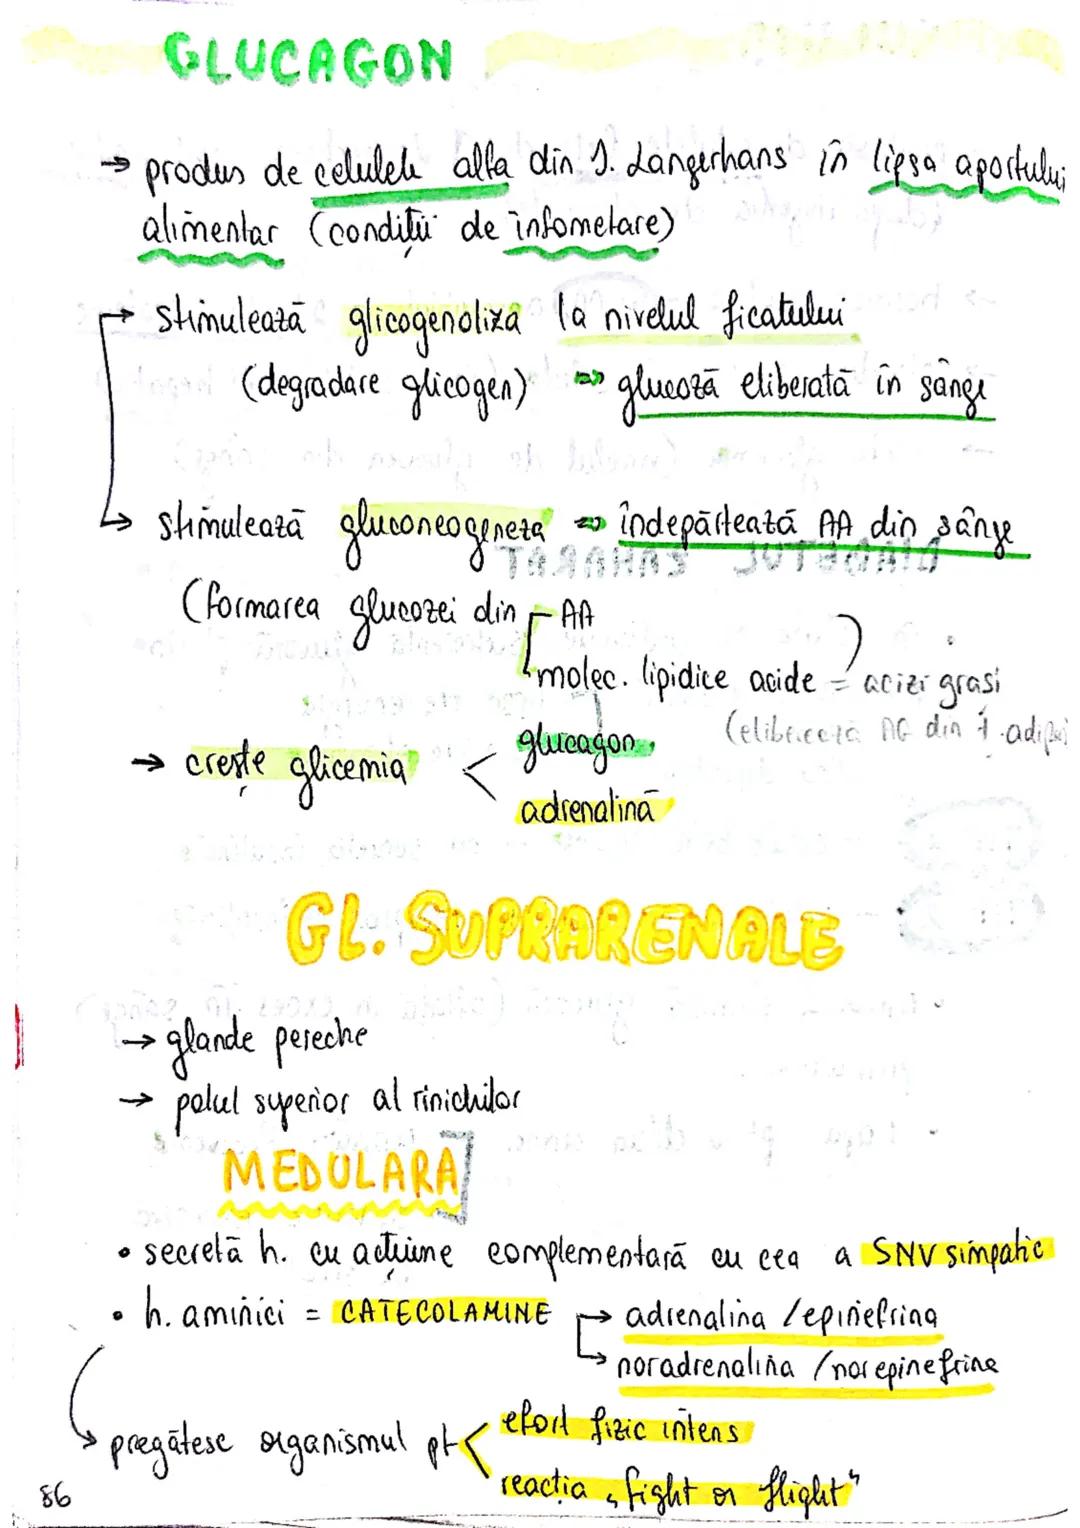 GLUCAGON
→ produs de celulele alfa din I. Langerhans în lipsa aportului
alimentar (condiții de înfometare)
→ stimulează glicogenoliza la nivelul ficatului
(degradare glicogen) => glucoză eliberată în sânge
→ stimulează gluconeogeneza => îndepărtează AA din sânge
(formarea glucozei din AA
molec. lipidice acide = acizi grași
(eliberează AG din ț. adipos
→ crește glicemia < glucagon
adrenalină
GL. SUPRARENALE
→ glande pereche
→ polul superior al rinichilor
MEDULARA
• secretă h. cu acțiune complementară cu cea a SNV simpatic
• h. aminici = CATECOLAMINE → adrenalina / epinefrina
→ noradrenalina / norepinefrina
→ pregătesc organismul pt < efort fizic intens
reacția „fight or flight"
86